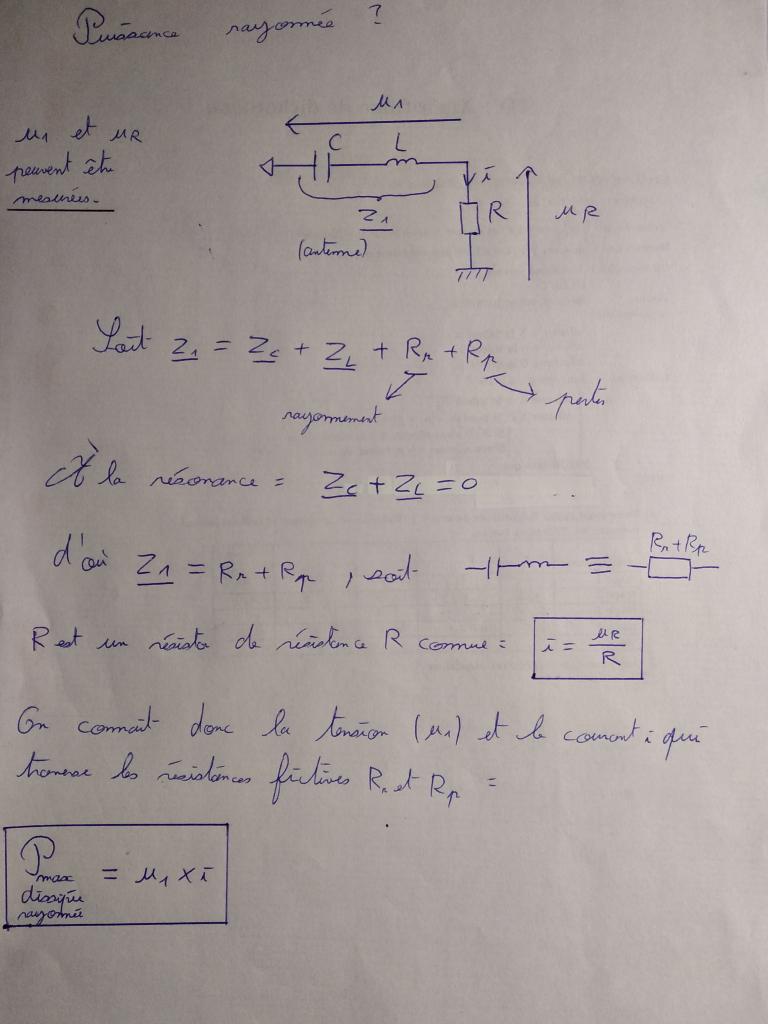 Puissance rayonnée ?
u1
u1 et uR
peuvent être
mesurées.
C L
i
Z1
R
uR
(antenne)
Soit Z1 = Zc + ZL + Rr + Rp
rayonnement
pertes
À la résonance = Zc + ZL = 0
d'où Z1 = Rr + Rp , soit ≡ Rr+Rp
R est un résistor de résistance R connue = i = uR/R
On connaît donc la tension (u1) et le courant i qui
traverse les résistances fictives Rr et Rp =
Pmax dissipée rayonnée = u1 × i